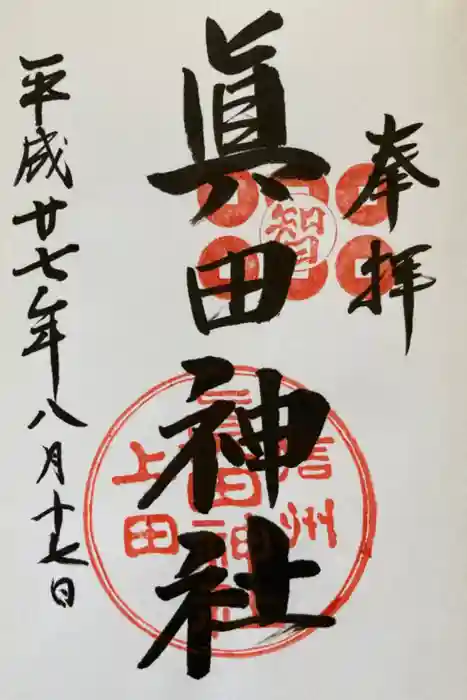 奉拝
智
眞田神社
信州
眞田神社
上田
平成廿七年八月十七日